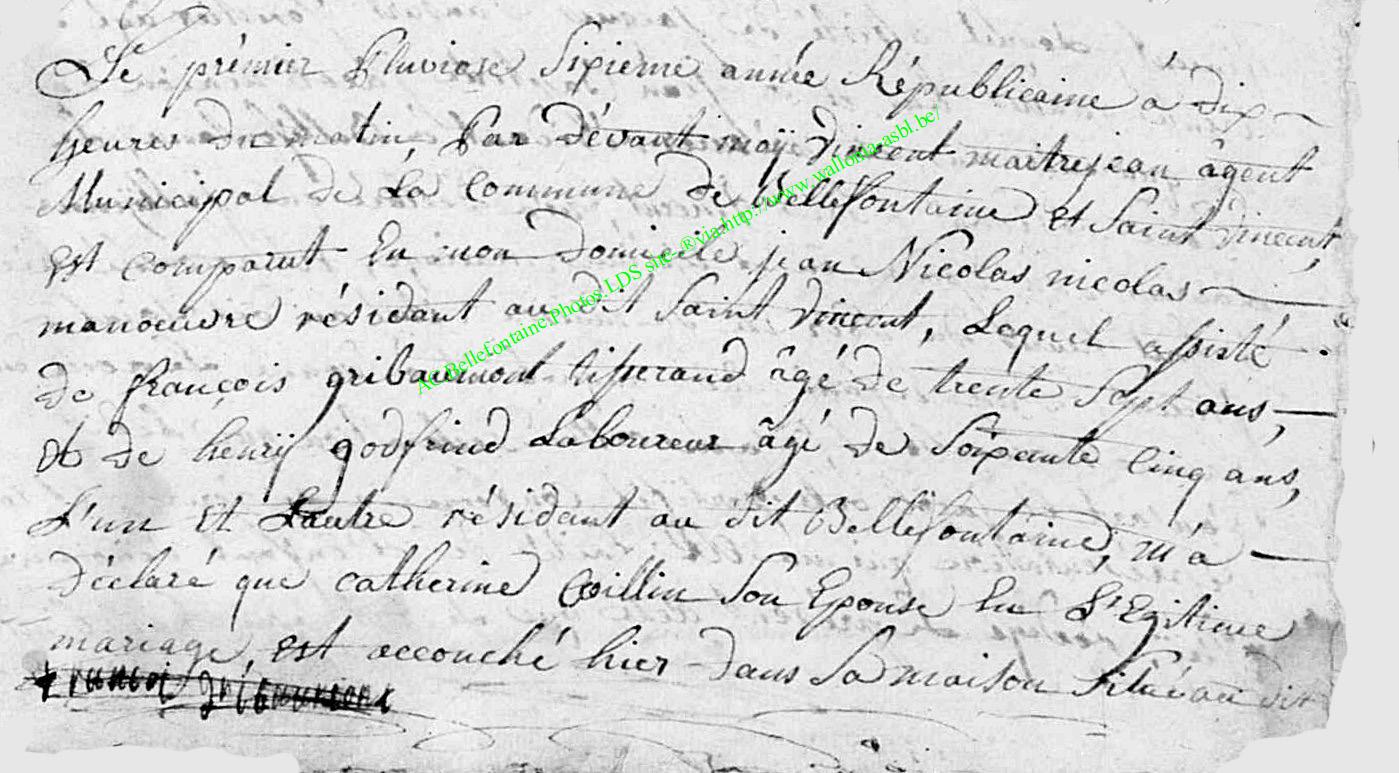 Le prémier Pluviose Sixieme année Républicaine à dix
heures du matin, Par dévant moÿ vincent maitrejean âgent
Municipal de La Commune de Bellefontaine et Saint vincent,
est comparut En mon domicile jean Nicolas nicolas
manoeuvre résidant au dit Saint vincent, Lequel assisté
de françois gribaumont tisserand âgé de trente Sept ans,
et de henrÿ godfrind Laboureur âgé de Soixante Cinq ans,
L'un et Lautre résidant au dit Bellefontaine, m'a
déclaré que catherine Collin Son Epouse En L'Egitime
mariage est accouché hier dans Sa maison Situéau dit
francoi gribaumont
Ac.Bellefontaine.Photos.LDS site-®via:http://www.wallonia-asbl.be/